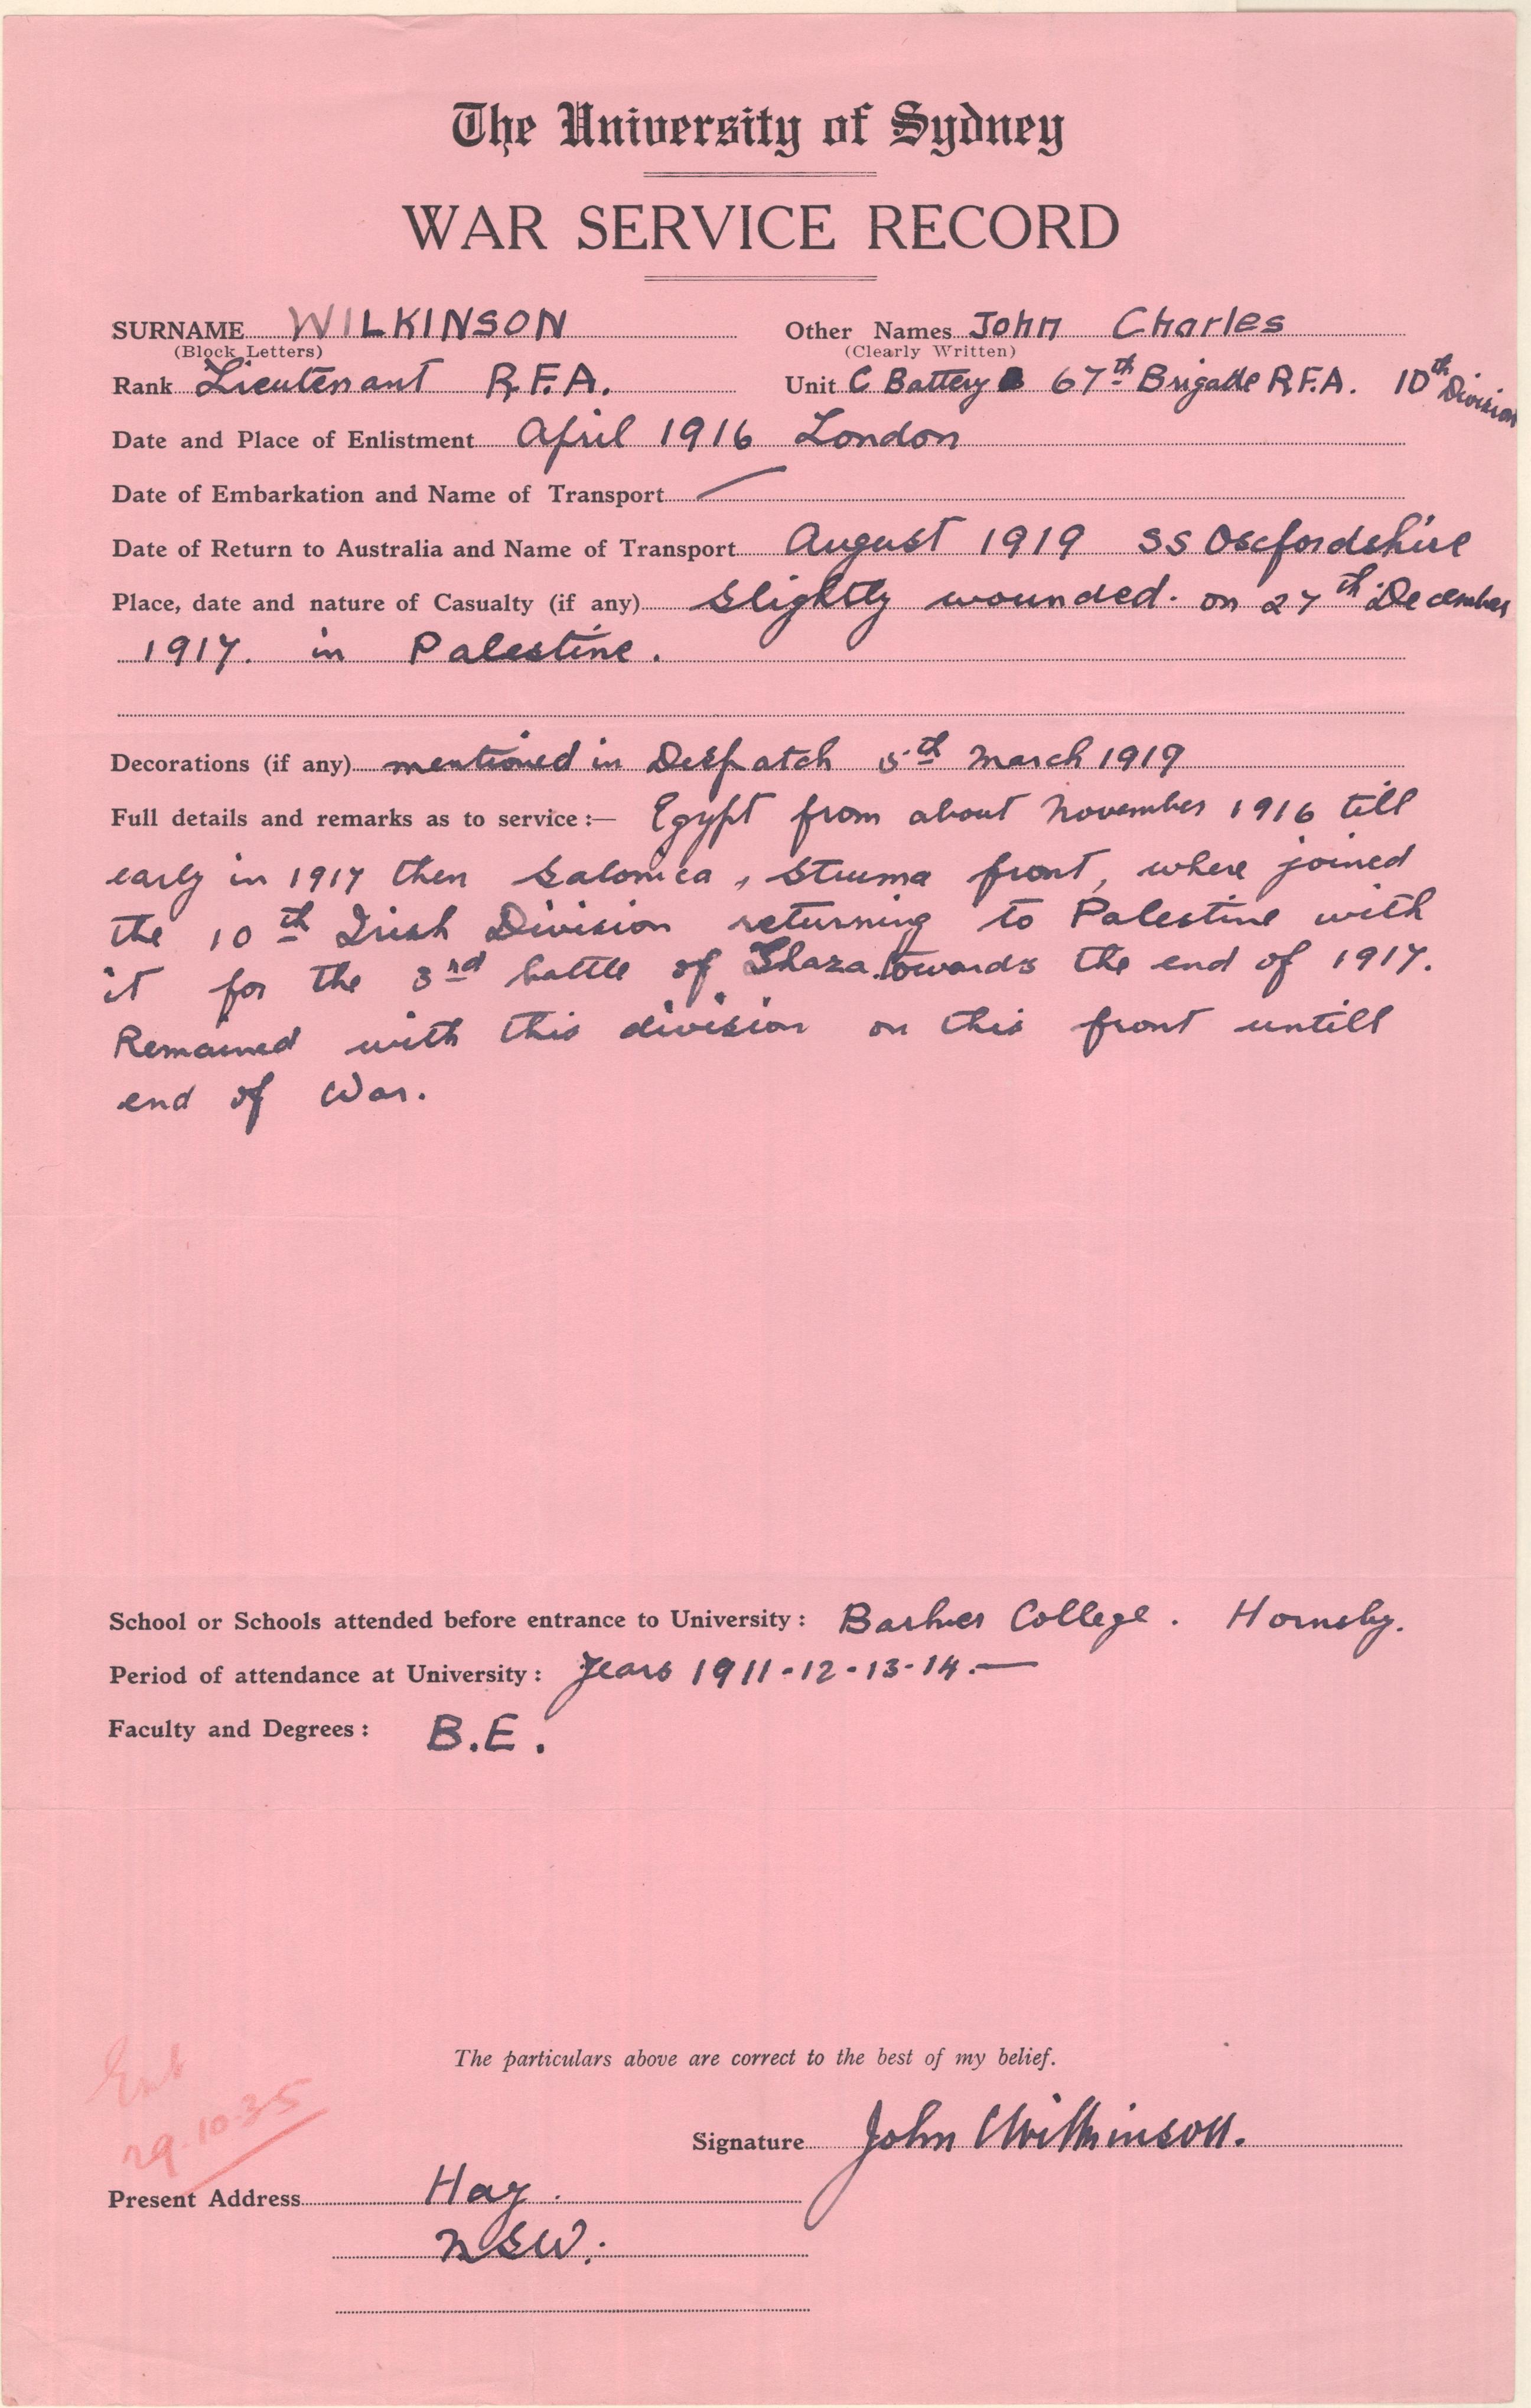 The University of Sydney
WAR SERVICE RECORD
SURNAME WILKINSON Other Names John Charles
(Block Letters) (Clearly Written)
Rank Lieutenant R.F.A. Unit C Battery 67th Brigade R.F.A. 10th Division
Date and Place of Enlistment April 1916 London
Date of Embarkation and Name of Transport —
Date of Return to Australia and Name of Transport August 1919 SS Oxfordshire
Place, date and nature of Casualty (if any) Slightly wounded. on 27th December
1917. in Palestine.
Decorations (if any) mentioned in Despatch 5th March 1919
Full details and remarks as to service:— Egypt from about November 1916 till
early in 1917 then Salonica, Struma front, where joined
the 10th Irish Division returning to Palestine with
it for the 3rd battle of Ghaza towards the end of 1917.
Remained with this division on this front untill
end of War.
School or Schools attended before entrance to University: Barker College. Hornsby.
Period of attendance at University: Years 1911-12-13-14.—
Faculty and Degrees: B.E.
The particulars above are correct to the best of my belief.
Ent
29.10.35
Signature John C Wilkinson.
Present Address Hay.
NSW.